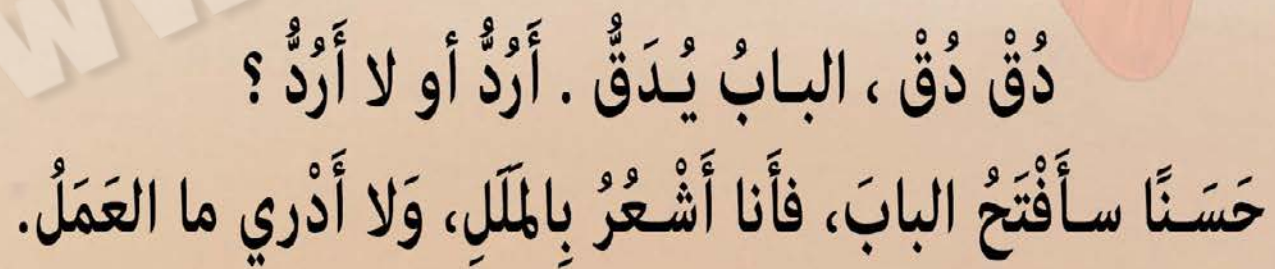 دُقْ دُقْ ، البابُ يُدَقُّ . أَرُدُّ أو لا أَرُدُّ ؟
حَسَنًا سأَفْتَحُ البابَ، فأَنا أَشْعُرُ بِالمَلَلِ، وَلا أَدْري ما العَمَلُ.